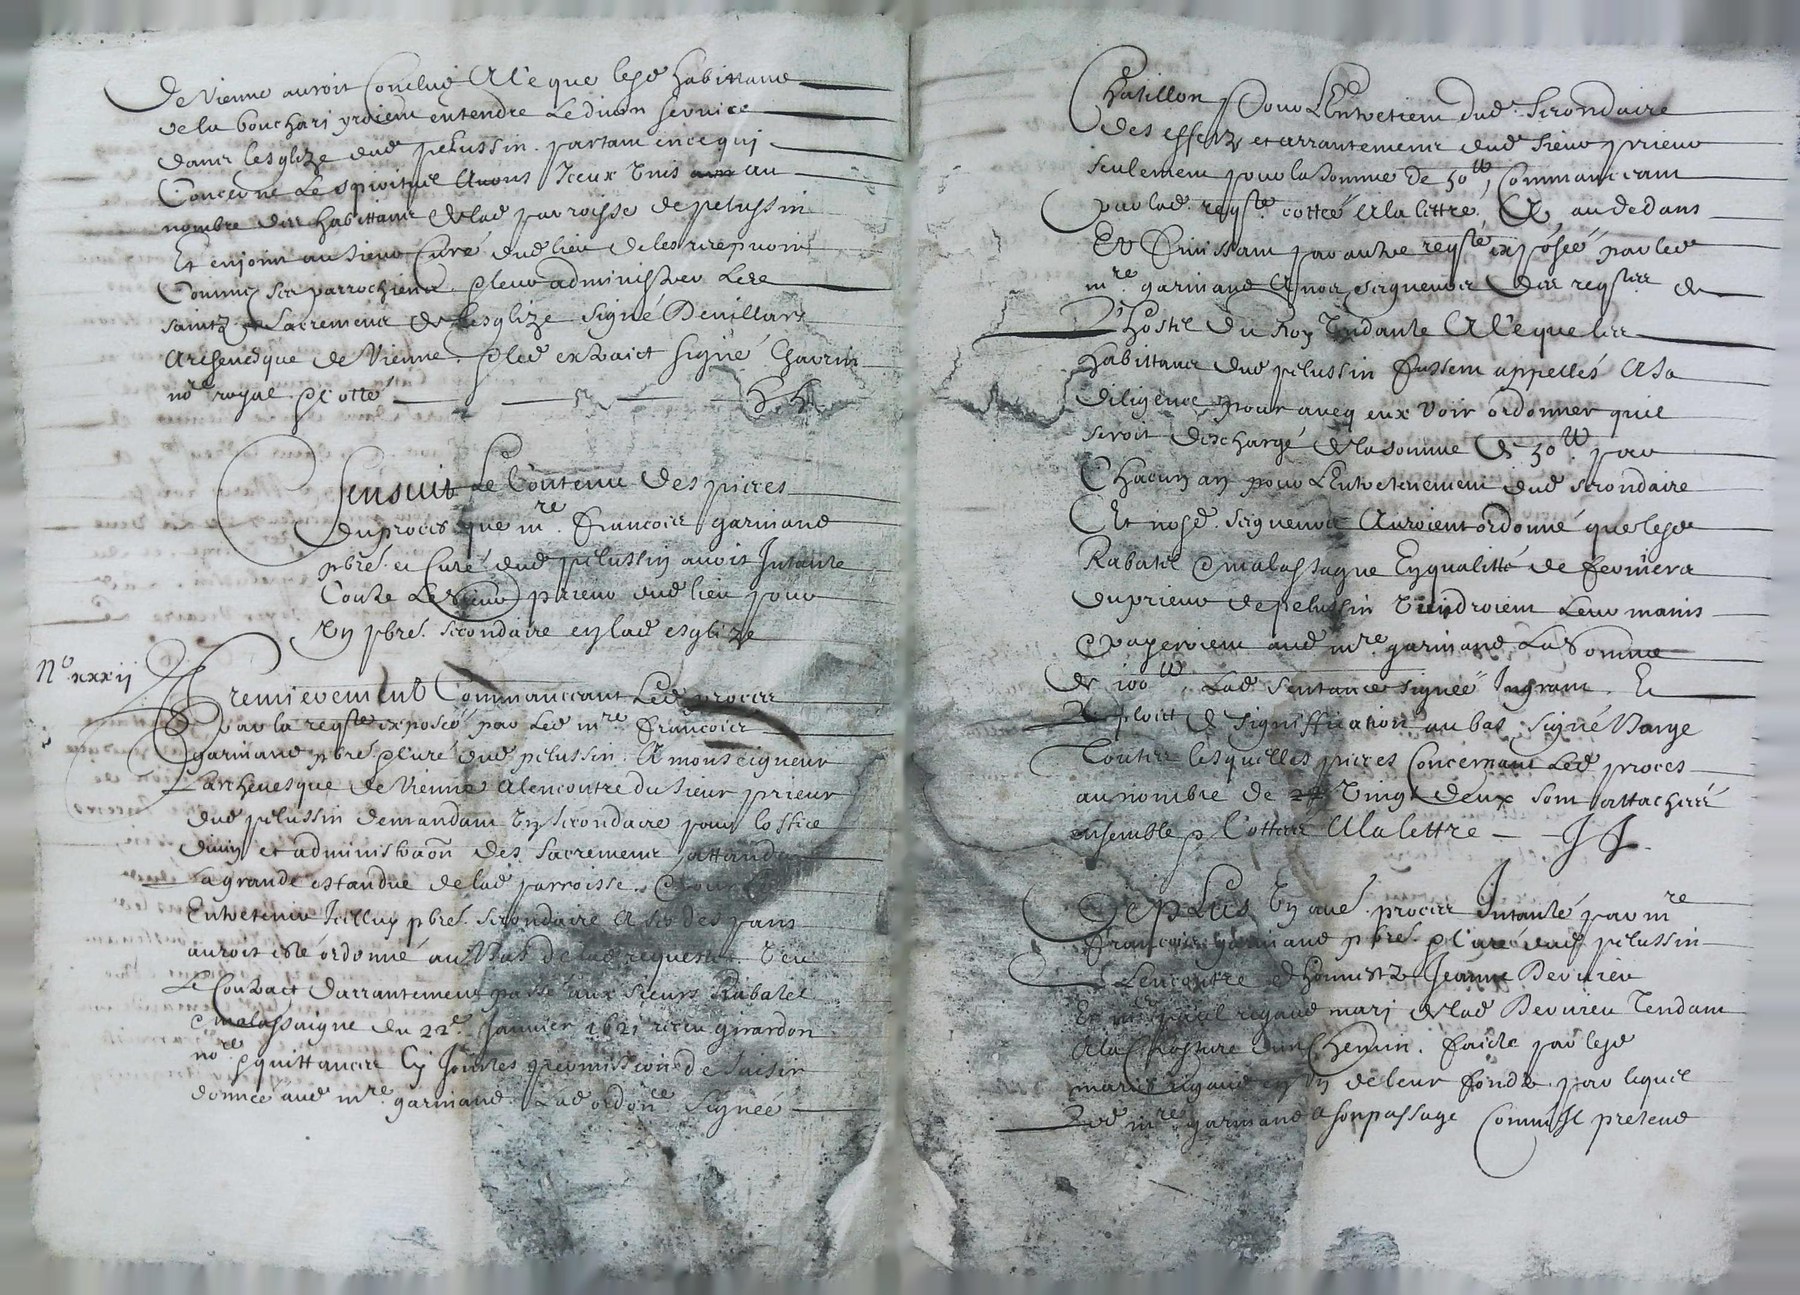 de Vienne auroit Conclud A Ce que lesd habittans
de la bouchari yroient entendre le divin service
dans lesglize dud pelussin. partant en ce qui
Concerne le spirituel Avons Iceux Unis au
nombre des habittans de lad parroisse de pelussin
Et enjoint au sieur Curé dud lieu de les
Comme ses parrochiens & leur administrer Les
saintz Sacrements de Lesglize signé De Villars
Archevesque de Vienne. & led extraict signé Chavrin
nore royal & Cotté
Sensuit Le Contenu des pieces
du proces que mre. francois garinand
pbre. et Curé dud pelussin avoit Intanté
Contre Le sieur prieur dud lieu pour
Un pbre. secondaire en lad esglize
No. xxxij
Premierement Commanceant Led proces
Par la reqste exposée par Led mre francois
garinand pbre. & Curé dud pelussin. A monseigneur
Larchevesque de Vienne A lencontre du sieur prieur
dud pelussin demandant Un secondaire pour loffice
divin et administraon des sacrements attandu
la grande estandue de lad parroisse. & pour
Entretenir Icelluy pbre. secondaire
auroit esté ordonné au bas de lad requeste. Veu
Le Contract darrantement passé aux sieurs Rabatel
& malassaigne du 22e. Janvier 1621 receu girardon
nore. & quittances Cy Jointes permission de saisir
donnée aud mre. garinand Lad ordonce signée
Chatillon Pour LEntretient dud. secondaire
des effectz et arrantements dud sieur prieur
seulement pour la somme de 50 tt, Commanceant
par lad. reqste. cottée A la lettre, A, au dedans
Et finissant par autre reqste exposée par led
mre. garinand A nos seigneurs des reqstes de
Lhostel du Roy Tendante A Ce que les
habittans dud pelussin fussent appellés A sa
diligence pour avec eux voir ordonner quil
seroit deschargé de la somme de 50 tt. par
Chacun an pour LEntretenement dud secondaire
Et nosd. seigneurs Auroient ordonné que lesd
Rabatel & malassagne En qualitté de fermiers
du prieur de pelussin Viendroient Leurs mains
& payeroient aud mre. garinand La somme
de 100 tt. Lad sentance signée Ingrant. Et
Exploict de signiffication au bas signé Barge
Toutes lesquelles pieces Concernant Led proces
au nombre de Vingt deux sont attachées
ensemble & Cottées A la lettre — JJ.
De plus Un autre proces Intanté par mre
francois garinand pbre. & Curé dud pelussin
A Lencontre dhonneste Jeanne Devirieu
Et mre paul rigaud mari de lad Devirieu Tendant
A la Closture dun Chemin. faicte par lesd
mariés rigaud en Un de leur fondz par lequel
Led mre. garinand a son passage Comme Il pretend